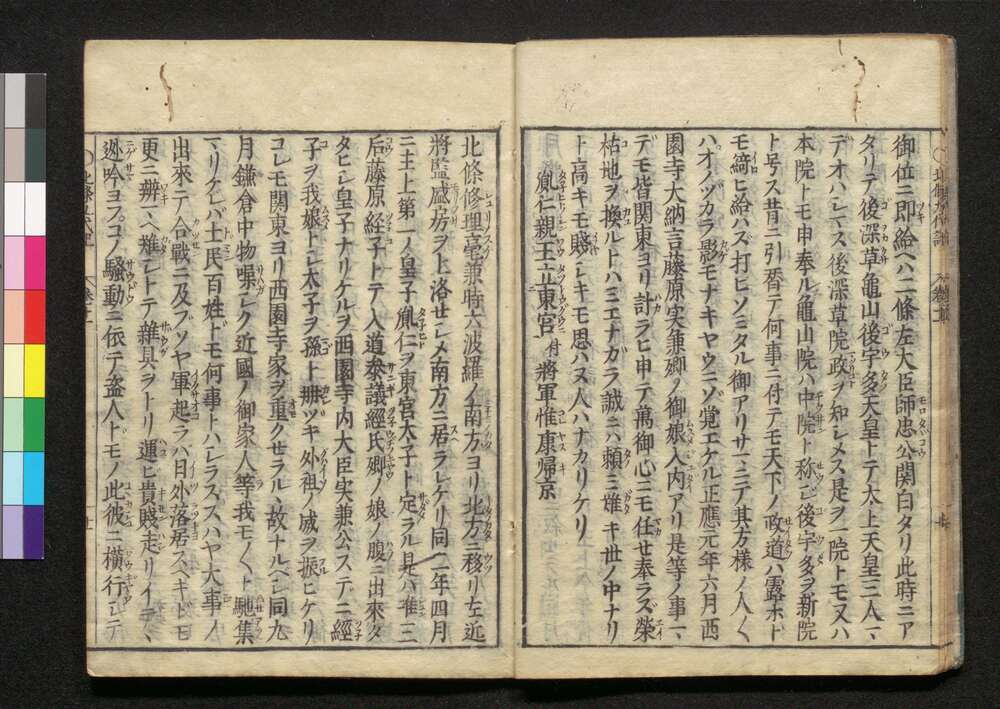 御位ニ即給ヘハ二條左大臣師忠公関白タリ此時ニア
タリテ後深草亀山後宇多天皇トテ太上天皇三人マ
デオハシマス後深草院政ヲ知シメス是ヲ一院トモ又ハ
本院トモ申奉ル亀山院ハ中院ト称シ後宇多ヲ新院
ト号ス昔ニ引替テ何事ニ付テモ天下ノ政道ハ露ホト
モ綺ヒ給ハズ打ヒソミタル御アリサマニテ其方様ノ人〱
ハオノヅカラ影モナキヤウニゾ覚エケル正應元年六月西
園寺大納言藤原実兼卿ノ御娘入内アリ是等ノ事マ
デモ皆関東ヨリ計ラヒ申テ萬御心ニモ任セ奉ラズ榮
枯地ヲ換ルトハミエナガラ誠ニハ頼ミ雄キ世ノ中ナリ
ト高キモ賤シキモ思ハヌ人ハナカリケリ
胤仁親王立東宮付將軍惟康帰京
北條修理亮兼時六波羅ノ南方ヨリ北方ニ移リ左近
將監盛房ヲ上洛セシメ南方ニ居ラレケリ同二年四月
ニ主上第一ノ皇子胤仁ヲ東宮太子ト定ラル是ハ准三
后藤原経子トテ入道参議経氏卿ノ娘ノ腹ニ出來タ
タヒシ皇子ナリケルヲ西園寺内大臣実兼公ステニ経
子ヲ我娘トシ太子ヲ孫ト册ツキ外祖ノ威ヲ振ヒケリ
コレモ関東ヨリ西園寺家ヲ重クセラルヽ故ナルヘシ同九
月鎌倉中物騒シク近國ノ御家人等我モ〱ト馳集
マリケレバ土民百姓ドモ何事トハシラススハヤ大事ノ
出來テ合戰ニ及ブソヤ軍起ラハ日外落居スベキトモ
更ニ辨ヘ難シトテ雜具ヲトリ運ビ貴賤走リイテヽ
迯吟ヨフコノ騒動ニ依テ盗人トモノ此彼ニ横行シテ